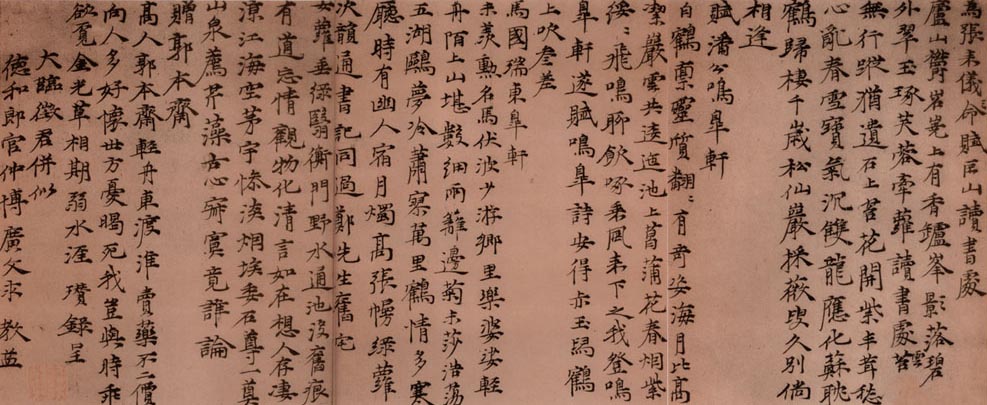 為張來儀命賦匡山讀書處
廬山欝岧嶤上有香鑪峯影落碧
外翠玉琢芙蓉牽蘿讀書處雲
無行蹤猶遺石上苔花開紫茸
心亂春雪寶氣沉雙龍應化蘇耽
鶴歸棲千歲松仙巖採薇叟久別倘
相逢
賦潘公鳴皐軒
白鶴稟靈質翩〻有奇姿海月比高
潔巖雲共逶迤池上菖蒲花春烟紫
緌〻飛鳴聊飲啄乘風來下之我登鳴
皐軒遂賦鳴皐詩安得赤玉舄鶴
上吹叄差
馬國瑞東皐軒
未羨勲名馬伏波少游鄉里樂婆娑輕
舟陌上山堪數細雨籬邊菊未莎浩蕩
五湖鷗夢冷蕭寥萬里鶴情多寒
廳時有幽人宿月燭高張幔綠蘿
次韻通書記同過鄭先生舊宅
女蘿垂綠翳衡門野水通池沒舊痕
有道忘情觀物化清言如在想人存凄
涼江海空茅宇慘淡烟埃委石尊一奠
山泉薦芹藻心寂寞竟誰論
贈郭本齋
高人郭本齋輕舟東渡淮賣藥不二價
向人多好懷世方憂暍死我豈與時乖
欲覓金光草相期弱水涯 瓚 錄呈
大臨徵君併似
德和郎官仲博廣文求 教益